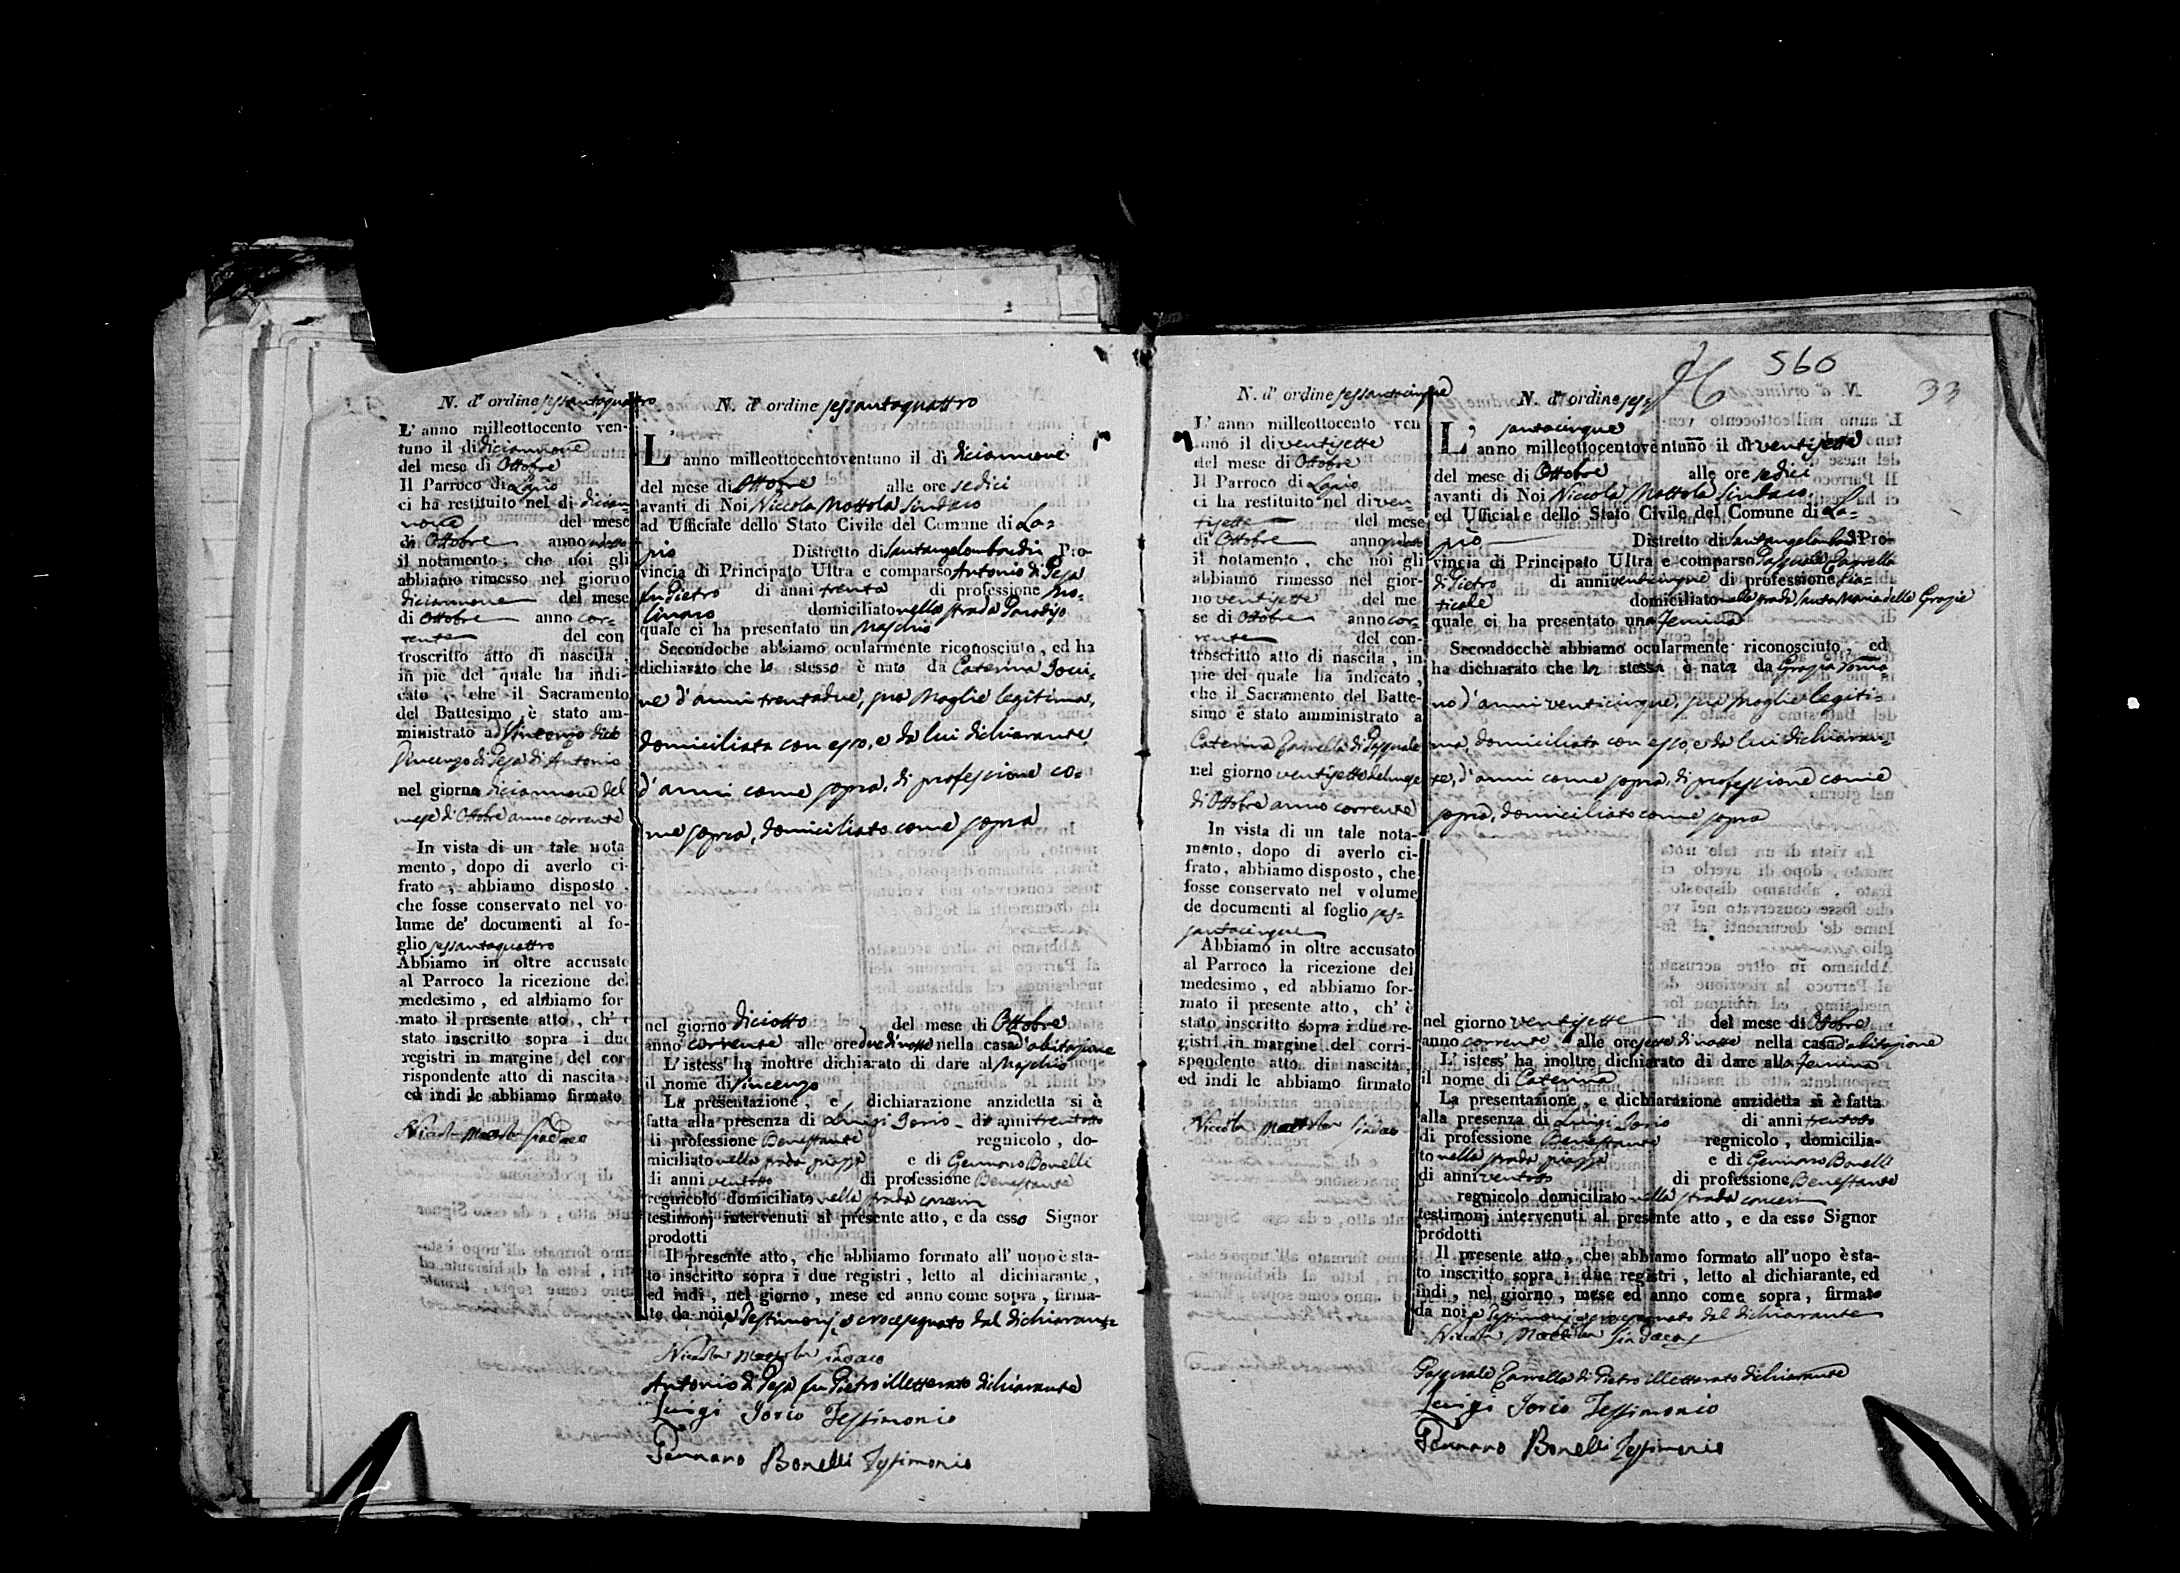 N. d' ordine sessantaquattro
L' anno milleottocento ven-
tuno il dì diciannove
del mese di Ottobre
Il Parroco di Lapio
ci ha restituito nel dì dician-
nove del mese
di Ottobre anno
il notamento, che noi gli
abbiamo rimesso nel giorno
diciannove del mese
di Ottobre anno cor-
rente del con
troscritto atto di nascita,
in piè del quale ha indi-
cato, che il Sacramento
del Battesimo è stato am-
ministrato a
Vincenzo di Pesa di Antonio
nel giorno diciannove del
mese di Ottobre anno corrente
In vista di un tale nota
mento, dopo di averlo ci-
frato, abbiamo disposto,
che fosse conservato nel vo-
lume de' documenti al fo-
glio sessantaquattro
Abbiamo in oltre accusato
al Parroco la ricezione del
medesimo, ed abbiamo for
mato il presente atto, ch' è
stato inscritto sopra i due
registri in margine del cor
rispondente atto di nascita
ed indi le abbiamo firmato
Niccola Mottola Sindaco
N. d' ordine sessantaquattro
L' anno milleottocentoventuno il dì diciannove
del mese di Ottobre alle ore sedici
avanti di Noi Niccola Mottola Sindaco
ad Ufficiale dello Stato Civile del Comune di La-
pio Distretto di Santangelombardi Pro-
vincia di Principato Ultra e comparso Antonio di Pesa
fu Pietro di anni trenta di professione Mo-
linaro domiciliato nella strada Paradiso
quale ci ha presentato un Maschio
Secondochè abbiamo ocularmente riconosciuto, ed ha
dichiarato che lo stesso è nato da Caterina Iovi-
ne d'anni trentadue, sua Moglie legitima,
domiciliata con esso, e da lui dichiarante
d'anni come sopra, di professione co-
me sopra, domiciliato come sopra
nel giorno diciotto del mese di Ottobre
anno corrente alle ore due di notte nella casa d'abitazione
L' istess' ha inoltre dichiarato di dare al Maschio
il nome di Vincenzo
La presentazione, e dichiarazione anzidetta si è
fatta alla presenza di Luigi Iorio di anni trentotto
di professione Benestante regnicolo, do-
miciliato nella strada piazza e di Gennaro Bonelli
di anni ventotto di professione Benestante
regnicolo domiciliato nella strada
testimonj intervenuti al presente atto, e da esso Signor
prodotti
Il presente atto, che abbiamo formato all' uopo è sta-
to inscritto sopra i due registri, letto al dichiarante,
ed indi, nel giorno, mese ed anno come sopra, firma-
to da noi, e Testimonj, e crocesegnato dal dichiarante
Niccola Mottola Sindaco
Antonio di Pesa fu Pietro illetterato dichiarante
Luigi Iorio Testimonio
Gennaro Bonelli Testimonio
560
33
N. d' ordine sessantacinque
L' anno milleottocento ven
tuno il dì ventisette
del mese di Ottobre
Il Parroco di Lapio
ci ha restituito nel dì ven-
tisette del mese
di Ottobre anno
il notamento, che noi gli
abbiamo rimesso nel gior-
no ventisette del me
se di Ottobre anno cor-
rente del con-
troscritto atto di nascita, in
piè del quale ha indicato,
che il Sacramento del Batte-
simo è stato amministrato a
Caterina Carrella di Pasquale
nel giorno ventisette del mese
di Ottobre anno corrente
In vista di un tale nota-
mento, dopo di averlo ci-
frato, abbiamo disposto, che
fosse conservato nel volume
de documenti al foglio ses-
santacinque
Abbiamo in oltre accusato
al Parroco la ricezione del
medesimo, ed abbiamo for-
mato il presente atto, ch' è
stato inscritto sopra i due re-
gistri in margine del corri-
spondente atto di nascita,
ed indi le abbiamo firmato
Niccola Mottola Sindaco
N. d' ordine ses-
santacinque
L' anno milleottocentoventuno il dì ventisette
del mese di Ottobre alle ore sedici
avanti di Noi Niccola Mottola Sindaco
ed Ufficiale dello Stato Civile del Comune di La-
pio Distretto di Santangelombardi Pro-
vincia di Principato Ultra e comparso Pasquale Carrella
di Pietro di anni venticinque di professione
domiciliato nella strada Santa Maria delle Grazie
quale ci ha presentato una Femina
Secondocchè abbiamo ocularmente riconosciuto, ed
ha dichiarato che la stessa è nata da Grazia
no d'anni venticinque, sua Moglie legiti-
ma, domiciliata con esso, e da lui dichiaran-
te, d'anni come sopra, di professione come
sopra, domiciliato come sopra
nel giorno ventisette del mese di Ottobre
anno corrente alle ore sette di notte nella casa d'abitazione
L' istess' ha inoltre dichiarato di dare alla Femina
il nome di Caterina
La presentazione, e dichiarazione anzidetta si è fatta
alla presenza di Luigi Iorio di anni trentotto
di professione Benestante regnicolo, domicilia-
to nella strada piazza e di Gennaro Bonelli
di anni ventotto di professione Benestante
regnicolo domiciliato nella strada
testimonj intervenuti al presente atto, e da esso Signor
prodotti
Il presente atto, che abbiamo formato all'uopo è sta-
to inscritto sopra i due registri, letto al dichiarante, ed
indi, nel giorno, mese ed anno come sopra, firmato
da noi e Testimonj, e crocesegnato dal dichiarante
Niccola Mottola Sindaco
Pasquale Carrella di Pietro illetterato dichiarante
Luigi Iorio Testimonio
Gennaro Bonelli Testimonio